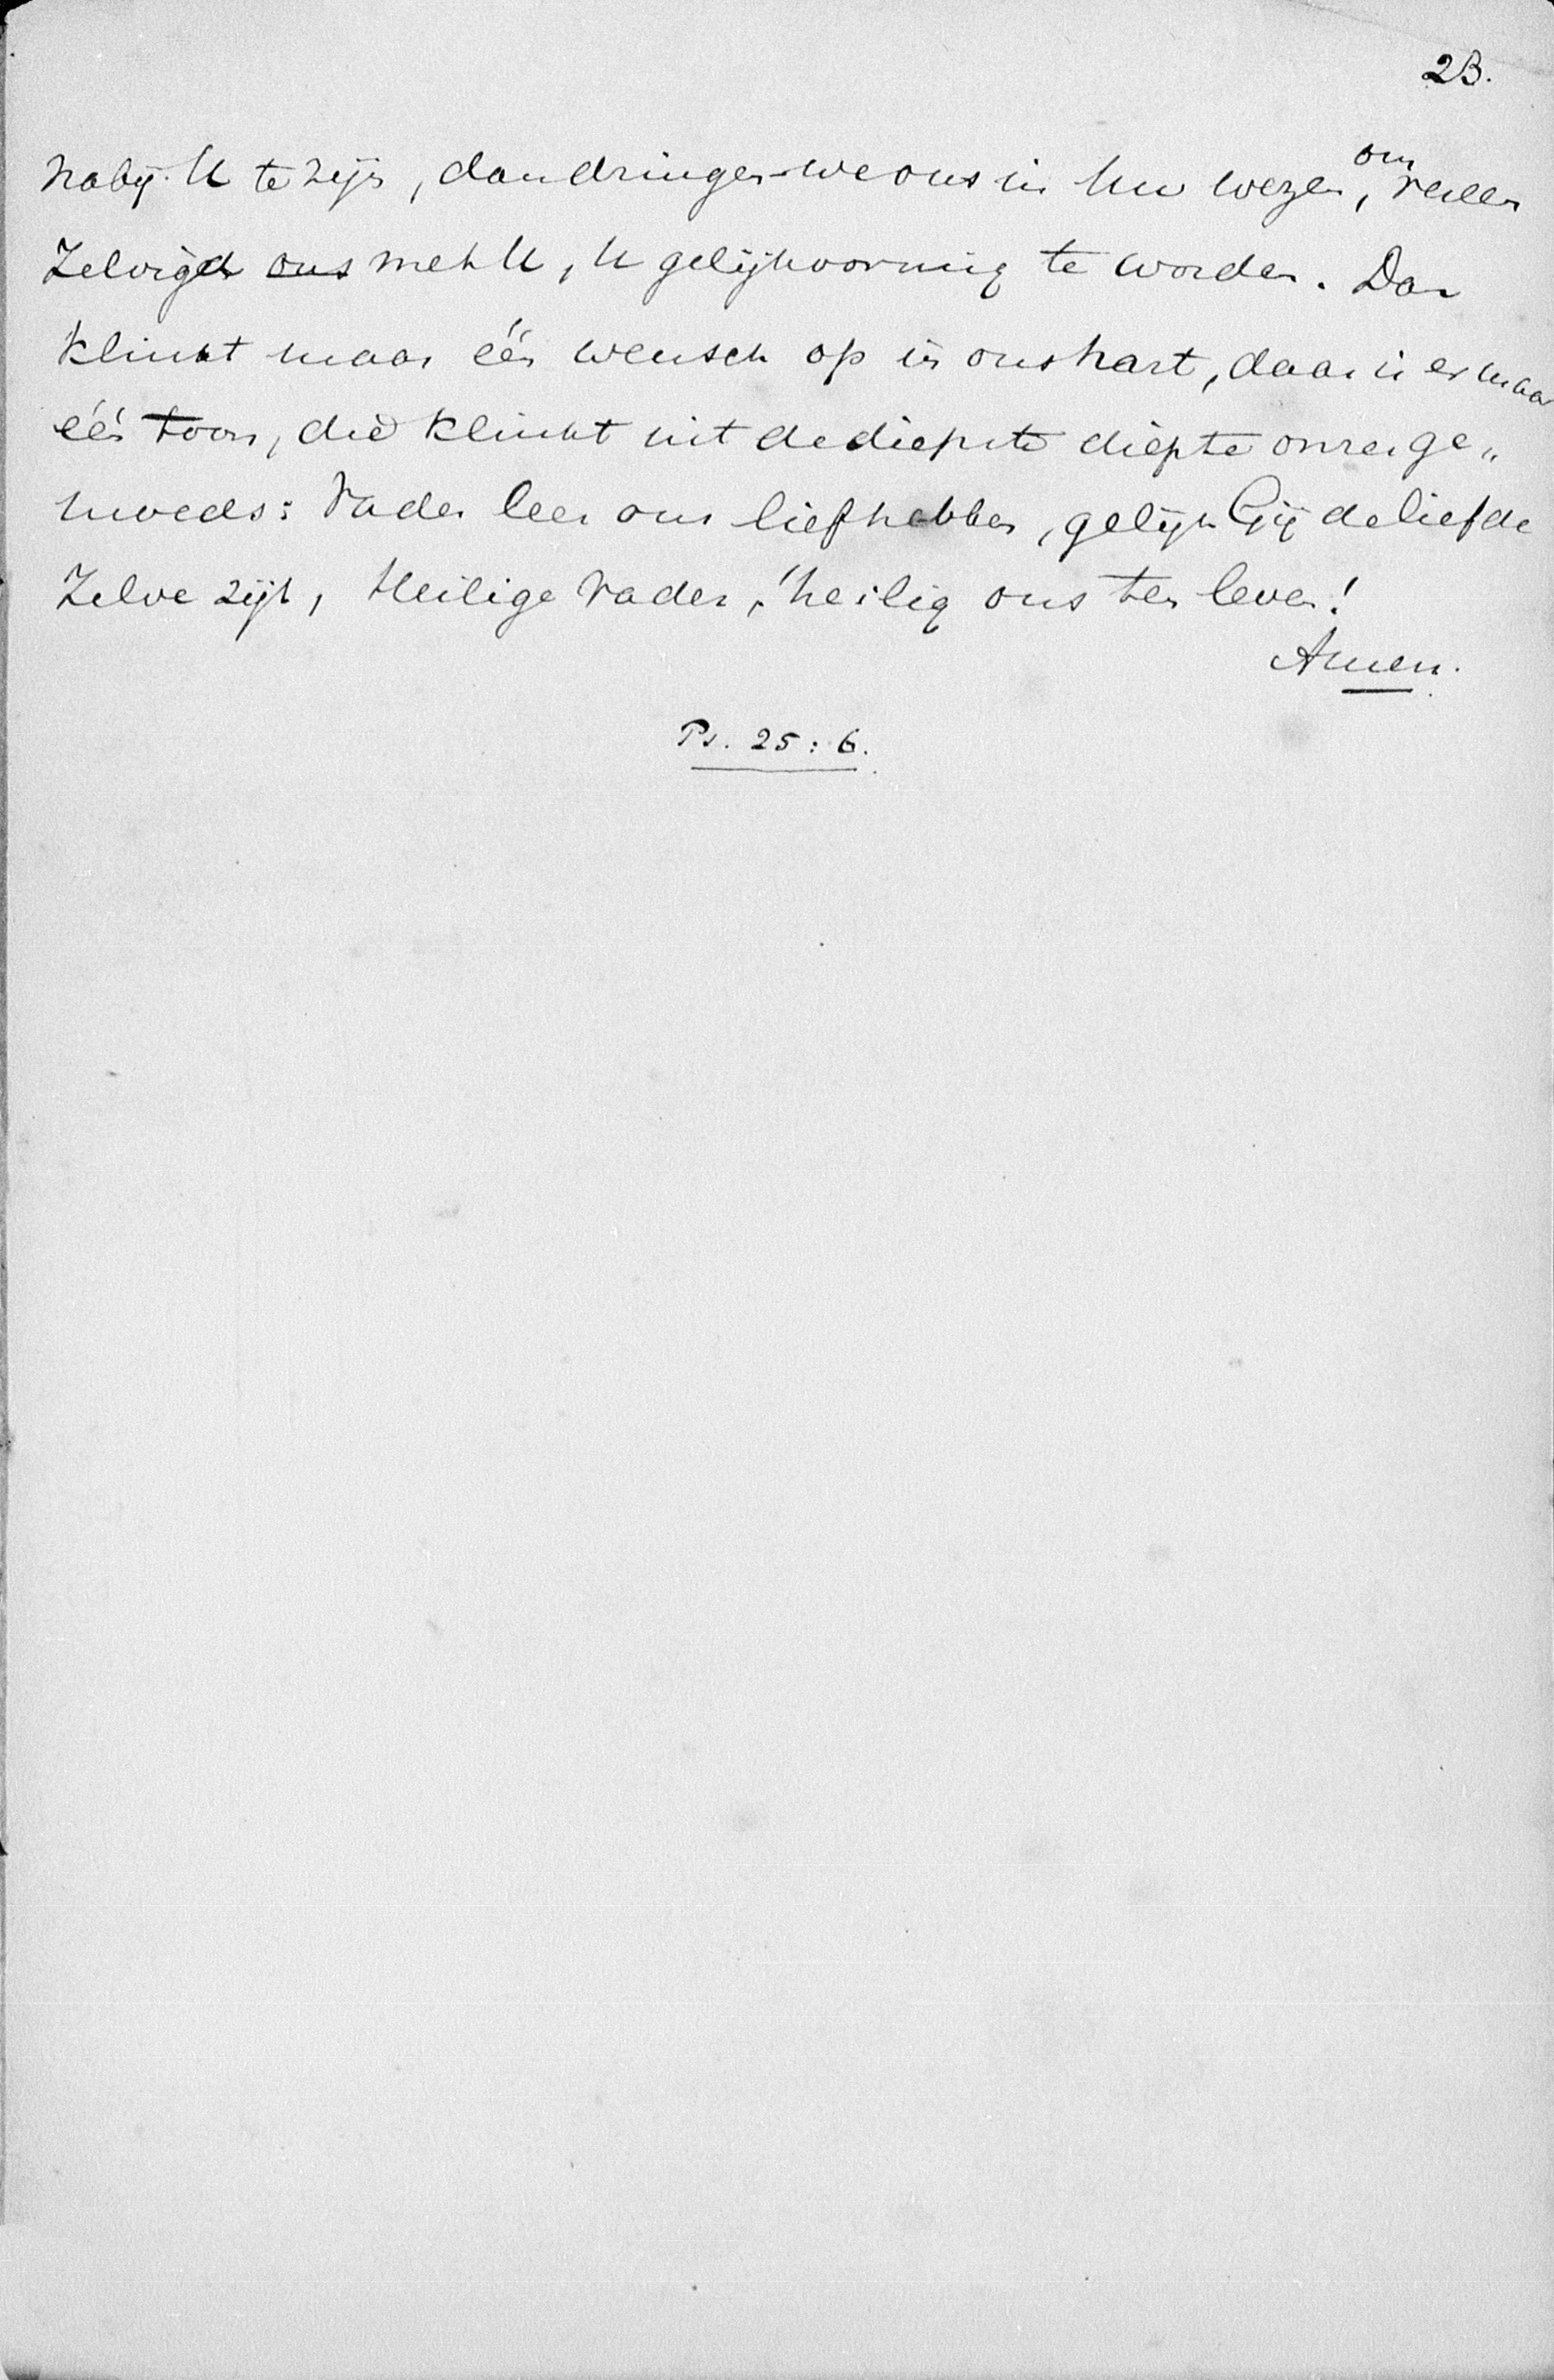 23.
naby U te zijn, dan dringen we ons in Uw wezen, om vereen
Zelvigd ons met U, U gelijkvormig te worden. Dan
klinkt maar één wensch op in ons hart, daar is er maar
één toon, die klinkt uit de diepste diepte onzes ge„
moeds: Vader leer ons liefhebben, gelijk Gij de liefde
Zelve zijt, Heilige Vader, heilig ons ten leven!
Amen.
Ps. 25:6.